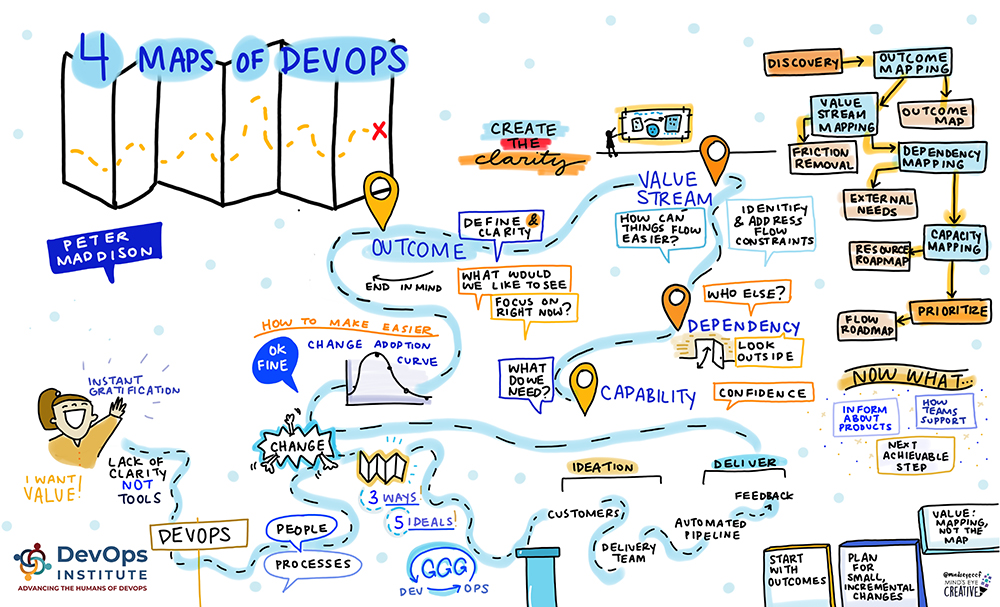 4 MAPS OF DEVOPS
PETER
MADDISON
CREATE
THE
clarity
OUTCOME
END IN MIND
DEFINE &
CLARITY
WHAT WOULD
WE LIKE TO SEE
FOCUS ON
RIGHT NOW?
VALUE
STREAM
HOW CAN
THINGS FLOW
EASIER?
IDENTIFY
& ADDRESS
FLOW
CONSTRAINTS
WHO ELSE?
DEPENDENCY
LOOK
OUTSIDE
WHAT
DO WE
NEED?
CAPABILITY
CONFIDENCE
HOW TO MAKE EASIER
OK
FINE
CHANGE ADOPTION
CURVE
INSTANT
GRATIFICATION
I WANT
VALUE!
LACK OF
CLARITY
NOT
TOOLS
DEVOPS
CHANGE
PEOPLE
PROCESSES
3 WAYS!
5 IDEALS!
GGG
DEV
OPS
IDEATION
DELIVER
CUSTOMERS
DELIVERY
TEAM
AUTOMATED
PIPELINE
FEEDBACK
DISCOVERY
OUTCOME
MAPPING
OUTCOME
MAP
VALUE
STREAM
MAPPING
FRICTION
REMOVAL
DEPENDENCY
MAPPING
EXTERNAL
NEEDS
CAPACITY
MAPPING
RESOURCE
ROADMAP
PRIORITIZE
FLOW
ROADMAP
NOW WHAT...
INFORM
ABOUT
PRODUCTS
HOW
TEAMS
SUPPORT
NEXT
ACHIEVABLE
STEP
START
WITH
OUTCOMES
PLAN
FOR
SMALL,
INCREMENTAL
CHANGES
VALUE:
MAPPING,
NOT THE
MAP
DevOps
INSTITUTE
ADVANCING THE HUMANS OF DEVOPS
@mindseyeccf
MIND'S EYE
CREATIVE